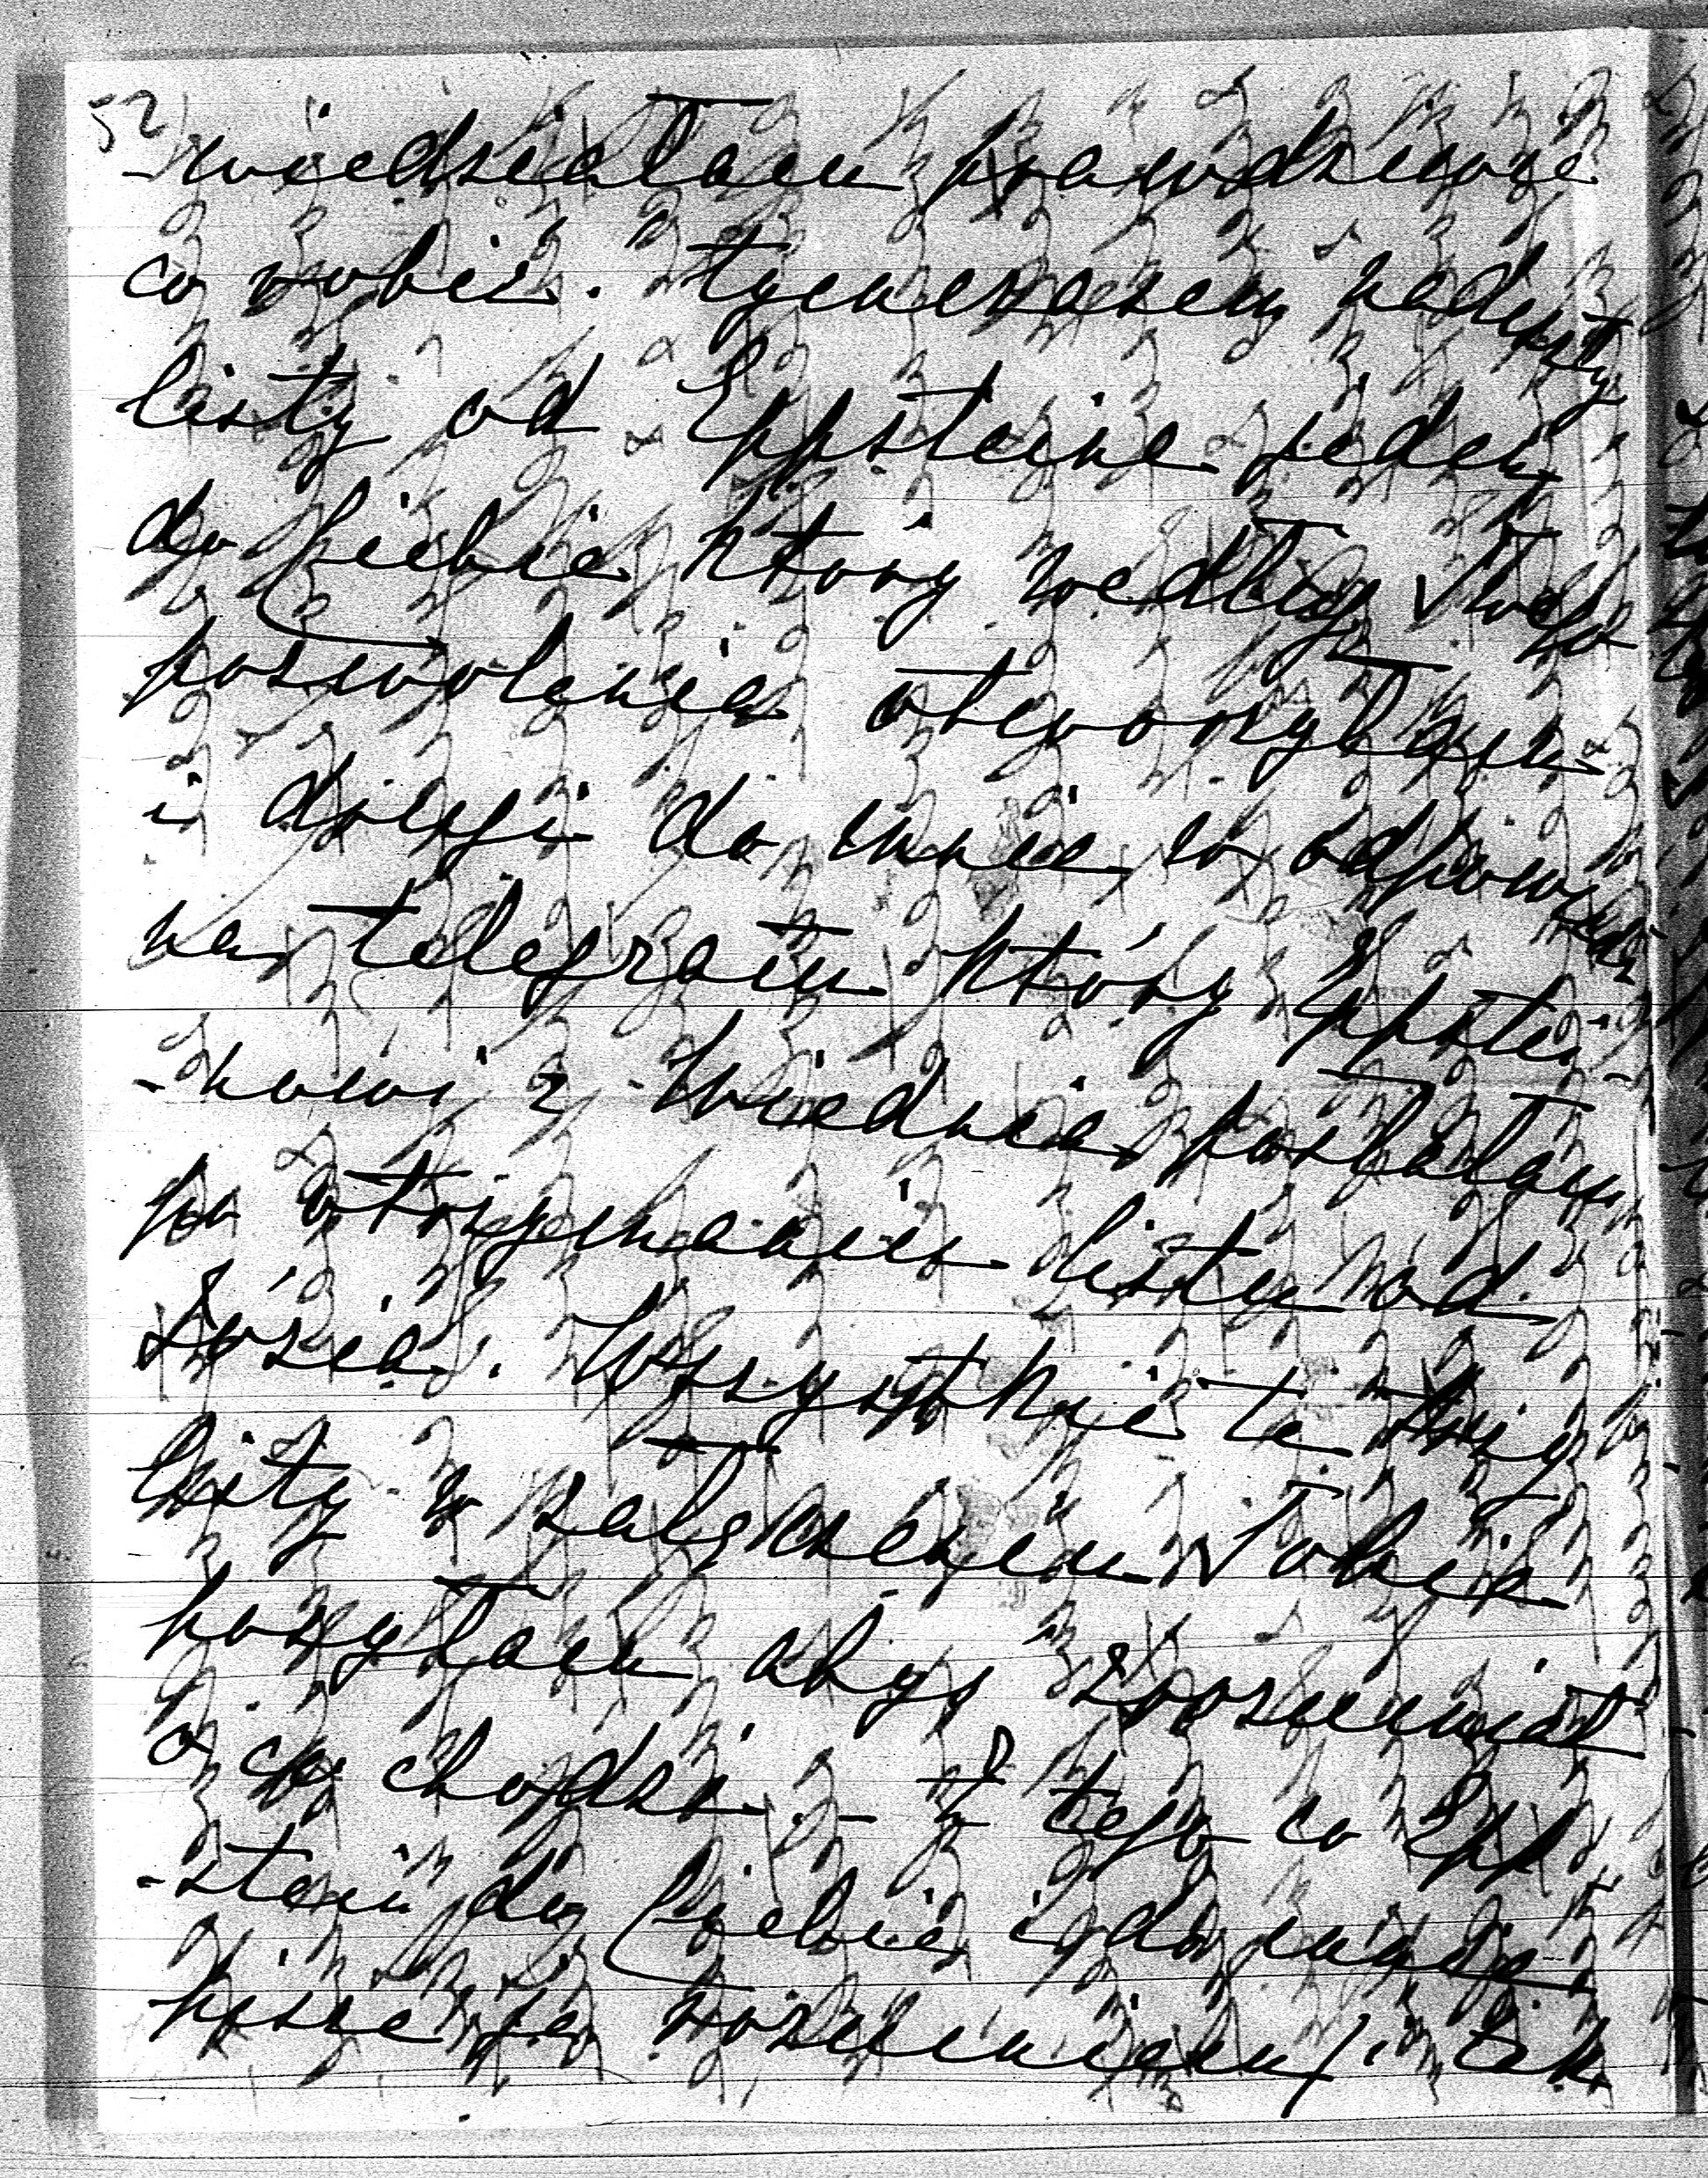 52
-wiedziałam prawdziwie
co robić. Tymczasem nadeszły
listy od Eppsteina jeden
do Ciebie który według Twego
pozwolenia otworzyłam
i drugi do mnie w odpowiedzi
na telegram który Eppstei-
-nowi z Wiednia posłałam
po otrzymaniu listu od
Józia. Wszystkie te trzy
listy w załączeniu Tobie
posyłam abyś zrozumiał
o co chodzi. – Z tego co Epp-
-stein do Ciebie i do mnie
pisze ja rozumiem, tak